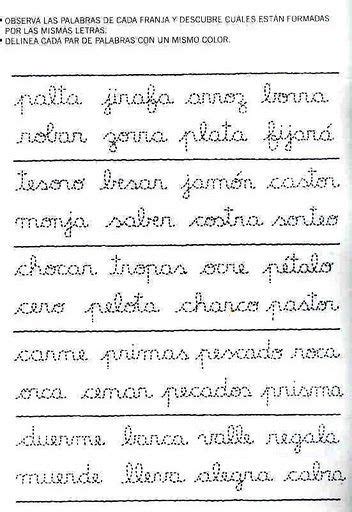 • OBSERVA LAS PALABRAS DE CADA FRANJA Y DESCUBRE CUÁLES ESTÁN FORMADAS
POR LAS MISMAS LETRAS.
• DELINEA CADA PAR DE PALABRAS CON UN MISMO COLOR.
palta jirafa arroz borra
robar zorra plata fijará
tesoro besar jamón castor
monja saber costra sorteo
chocar tropas ocre pétalo
cero pelota charco pastor
carne primas pescado roca
orca cenar pecados prisma
duerme barca valle regala
muerde lleva alegra cabra